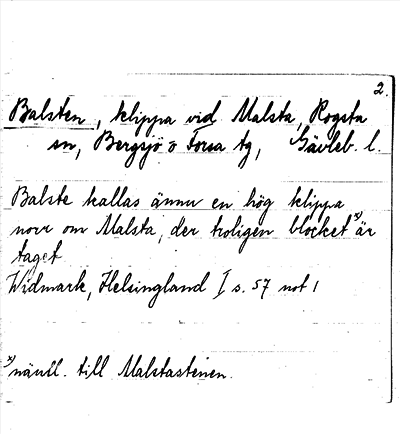 2.
Balsten, klippa vid Malsta, Rogsta
sn, Bergsjö o Forsa tg, Gävleb. l.
Balste kallas ännu en hög klippa
norr om Malsta, der troligen blocket x) är
taget
Widmark, Helsingland I s. 57 not 1
x) näml. till Malstastenen.